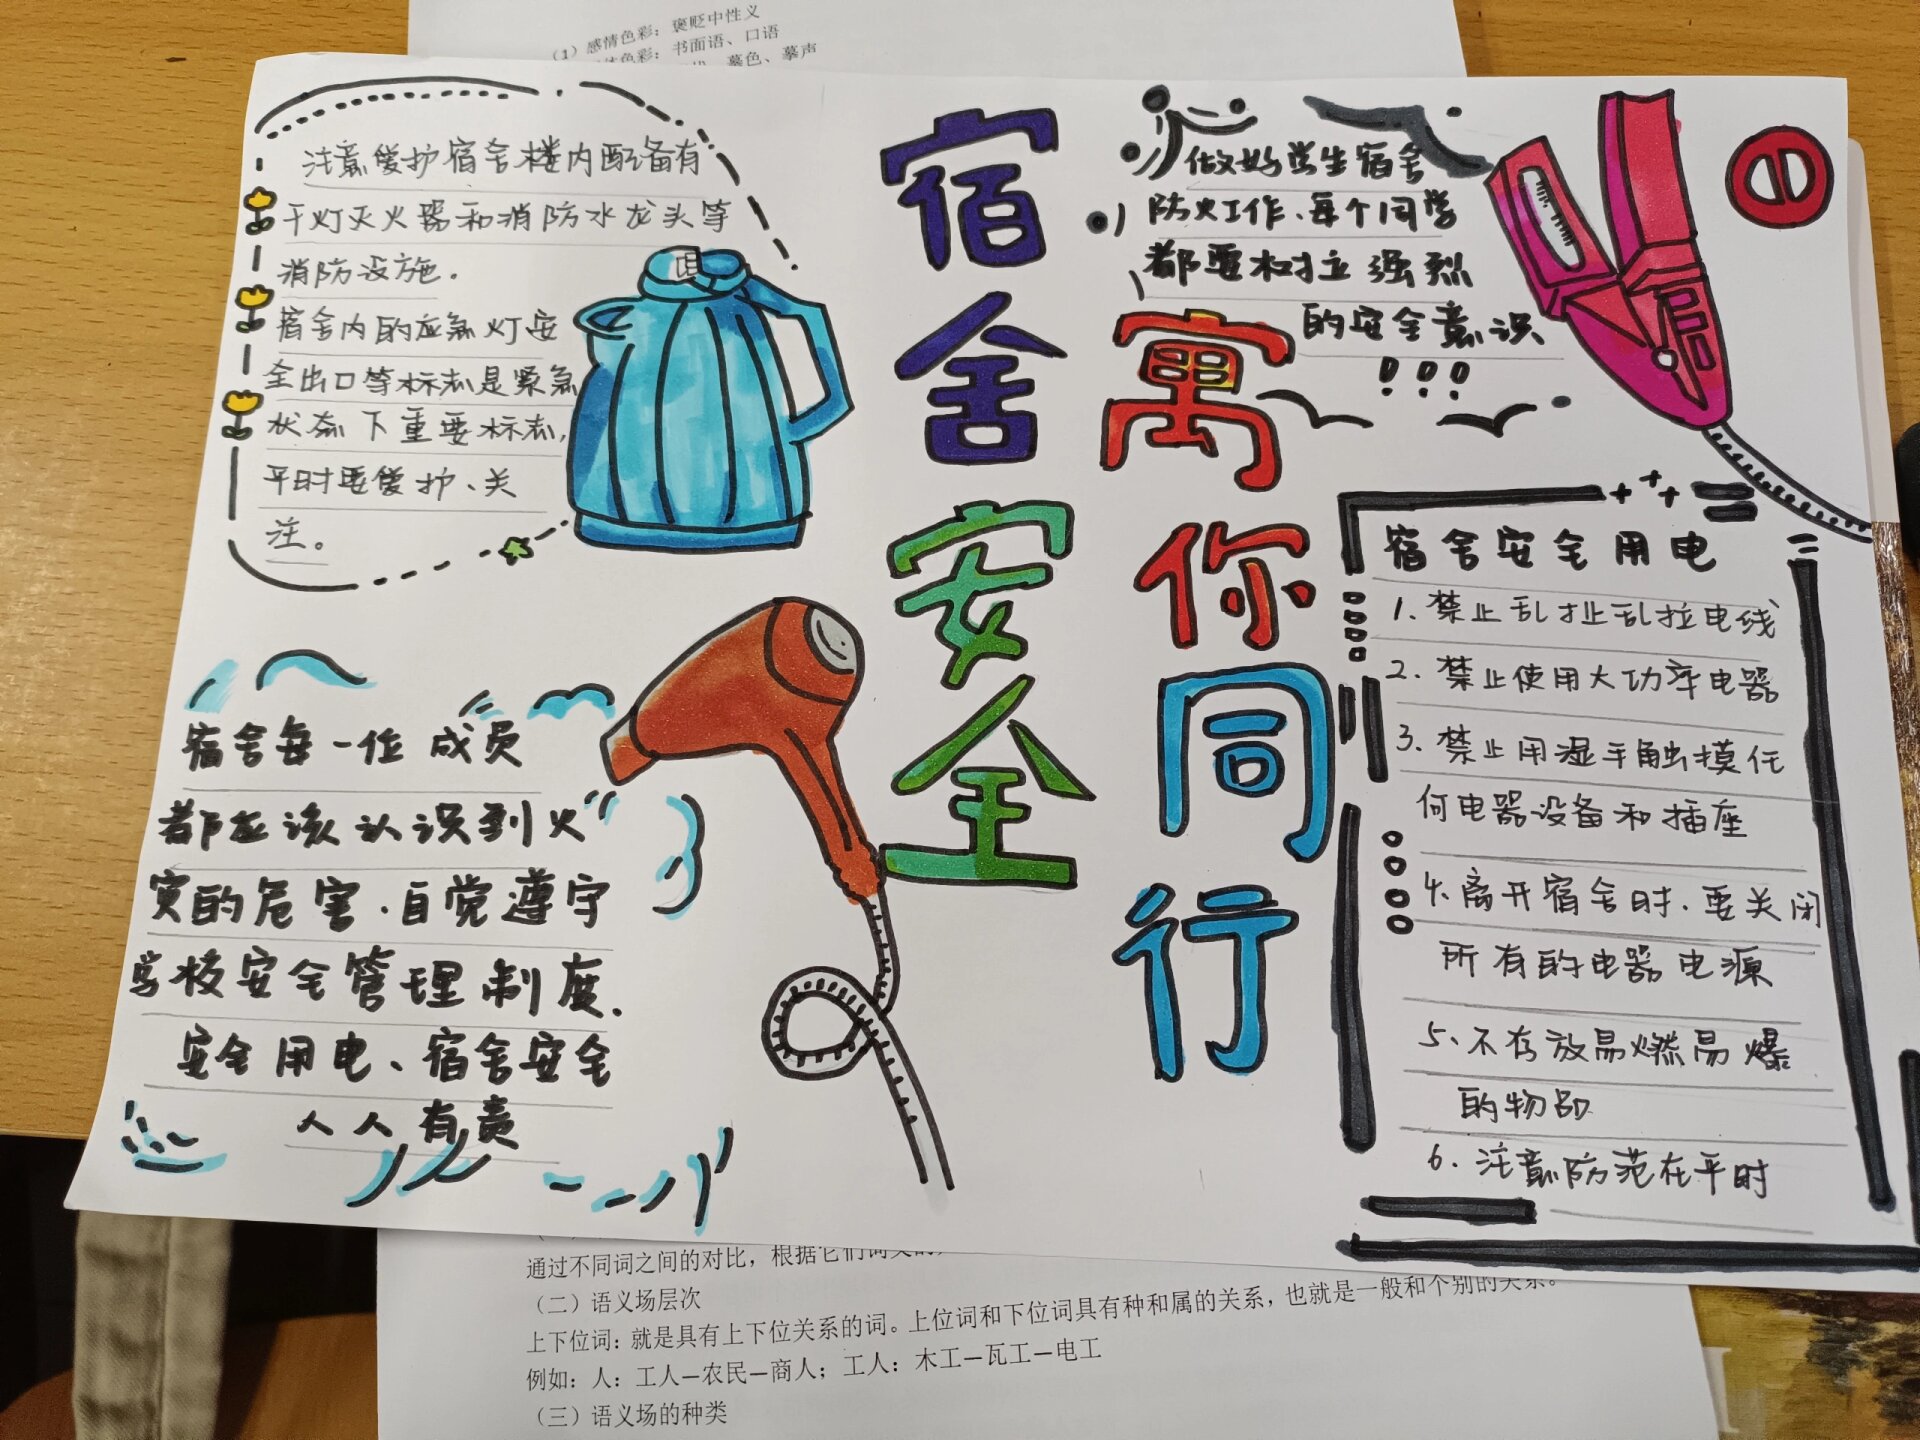 （1）感情色彩：褒贬中性义
体色彩：书面语、口语
、摹色、摹声
注意爱护宿舍楼内配备有
干灯灭火器和消防水龙头等
消防设施.
宿舍内的应急灯安
全出口等标志是紧急
状态下重要标志,
平时要爱护、关
注。
宿舍安全
寓你同行
做好学生宿舍
防火工作、每个同学
都要树立强烈
的安全意识
!!!
宿舍每一位成员
都应该认识到火
灾的危害.自觉遵守
学校安全管理制度.
安全用电、宿舍安全
人人有责
宿舍安全用电
1.禁止乱扯乱拉电线
2.禁止使用大功率电器
3.禁止用湿手触摸任
何电器设备和插座
4.离开宿舍时、要关闭
所有的电器电源
5.不存放易燃易爆
的物品
6.注意防范在平时
通过不同词之间的对比，根据它们词义的
（二）语义场层次
上下位词：就是具有上下位关系的词。上位词和下位词具有种和属的关系，也就是一般和个别的关系。
例如：人：工人—农民—商人；工人：木工—瓦工—电工
（三）语义场的种类